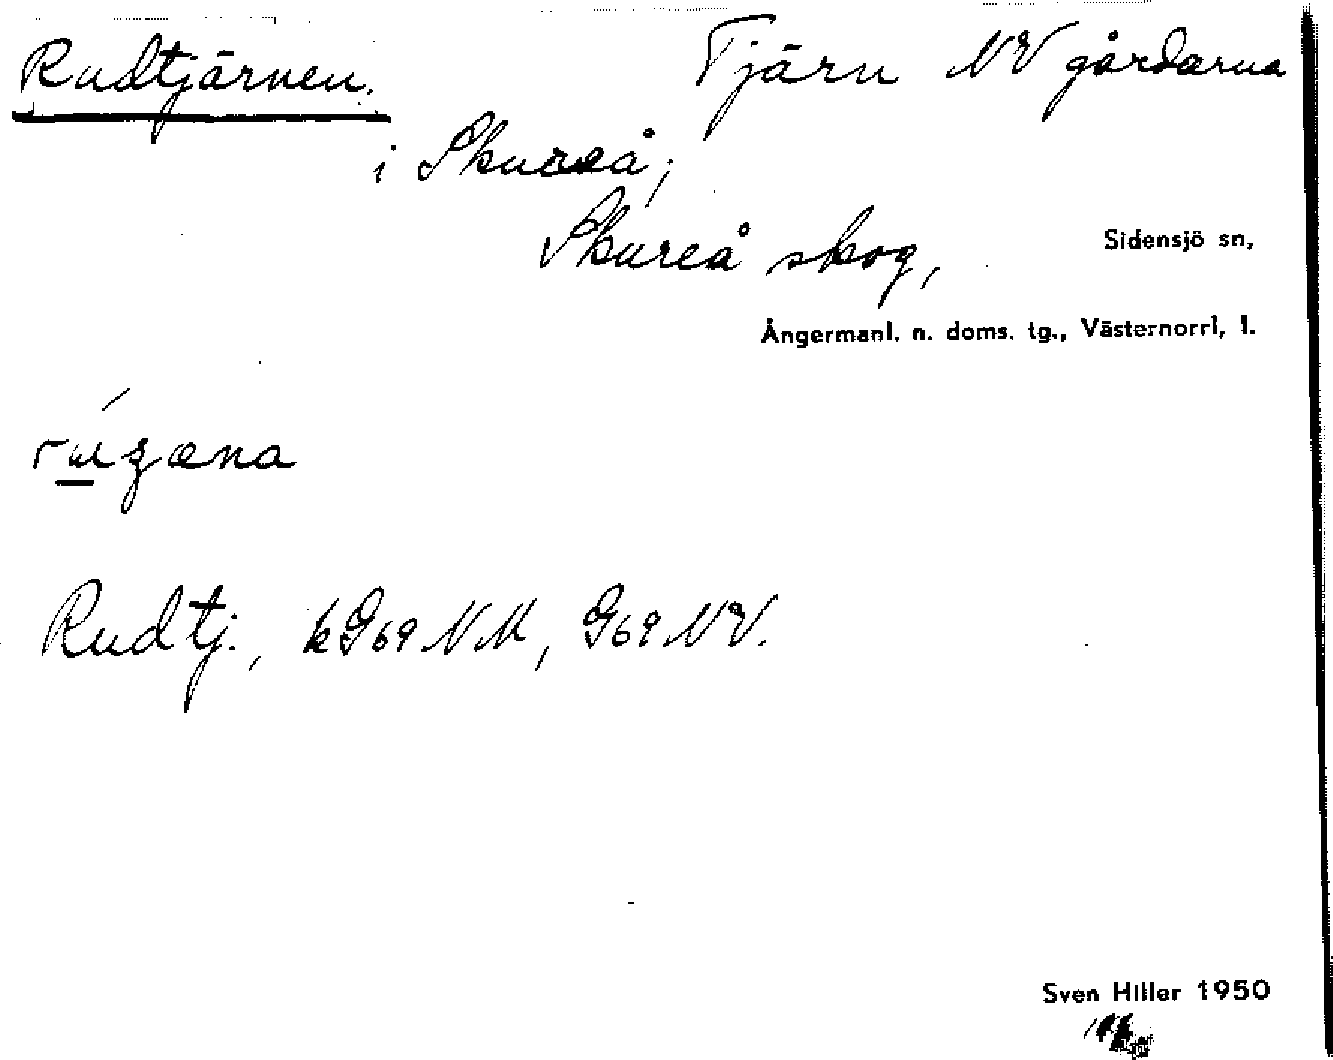 Rudtjärnen. Tjärn NV gårdarna
i Skureå;
Skureå skog, Sidensjö sn,
Ångermanl. n. doms. tg., Västernorrl, l.
Rudtj., kG69NM, G69NV.
Sven Hiller 1950